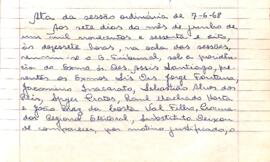 Ata da sessão ordinária de 7-6-68
Aos sete dias do mês de junho de
um mil novecentos e sessenta e oito,
às dezessete horas, na sala das sessões,
reuniu-se o E. Tribunal, sob a presidên-
cia do Exmo Sr. Des. Assis Santiago, pre-
sentes os Exmos Srs. Drs. Jorge Fontana,
Jacomino Inacarato, Sebastião Alves dos
Reis, Spyer Prates, Raul Machado Horta
e João Braz da Costa Val Filho, Procura-
dor Regional Eleitoral, Substituto. Deixou
de comparecer, por motivo justificado, o